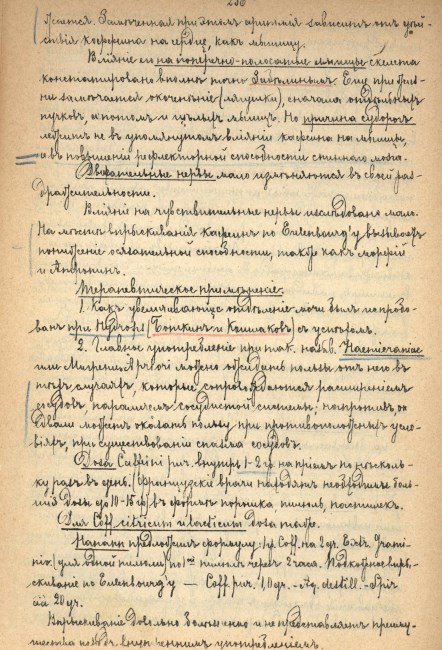 256
жается. Замѣченная при этомъ аритмія зависитъ отъ дѣй-
ствія кофеина на сердце, какъ мышцу.
Вліяніе его на поперечно-полосатыя мышцы скелета
констатировано вполнѣ точно Заболинымъ. Еще при жиз-
ни замѣчается окоченѣніе (лягушки), сначала отдѣльныхъ
пучковъ, а потомъ и цѣлыхъ мышцъ. Но причина судорогъ
лежитъ не въ упомянутомъ вліяніи кофеина на мышцы,
а въ повышеніи рефлекторной способности спиннаго мозга.
Двигательные нервы мало измѣняются въ своей раз-
дражительности.
Вліяніе на чувствительные нервы изслѣдовано мало.
На мѣстѣ впрыскиванія кофеинъ по Eulenbourg'у вызываетъ
пониженіе осязательной способности, также какъ морфій
и Атропинъ.
Терапевтическое примѣненіе:
1. Какъ увеличивающее отдѣленіе мочи былъ испробо-
ванъ при Hydrops (Боткинъ и Кошлаковъ) съ успѣхомъ.
2. Главное употребленіе при так. назыв. Hemicraniae
или Мигрени. A priori можно ожидать пользы отъ него въ
тѣхъ случаяхъ, которые сопровождаются расширеніемъ
сосудовъ, параличемъ сосудистой системы; напротивъ, он
едвали можетъ оказать пользу при противоположныхъ усло-
віяхъ, при существованіи спазма сосудовъ.
Доза Coffeini pur. внутрь 1-2 гр. на пріемъ по нѣсколь-
ку разъ въ день. (Французскіе врачи находятъ необходимые боль-
шія дозы до 10-15 гр.) въ формѣ порошка, пилюль, пастилекъ.
Для Coff. citricum и lacticum доза таже.
Hanann предложилъ формулу: 1 гр. Coff. на 2 gr. Extr. Grami-
nis (для одной пилюли) по 1ой пилюлѣ черезъ 2 часа. Подкожное впры-
скиваніе по Eulenbourg'у — Coff. pur. 1,0 gr. - Aq. destill. - Spir.
āā 20 gr.
Впрыскиваніе довольно болѣзненно и не представляетъ преиму-
щества передъ внутреннимъ употребленіемъ.